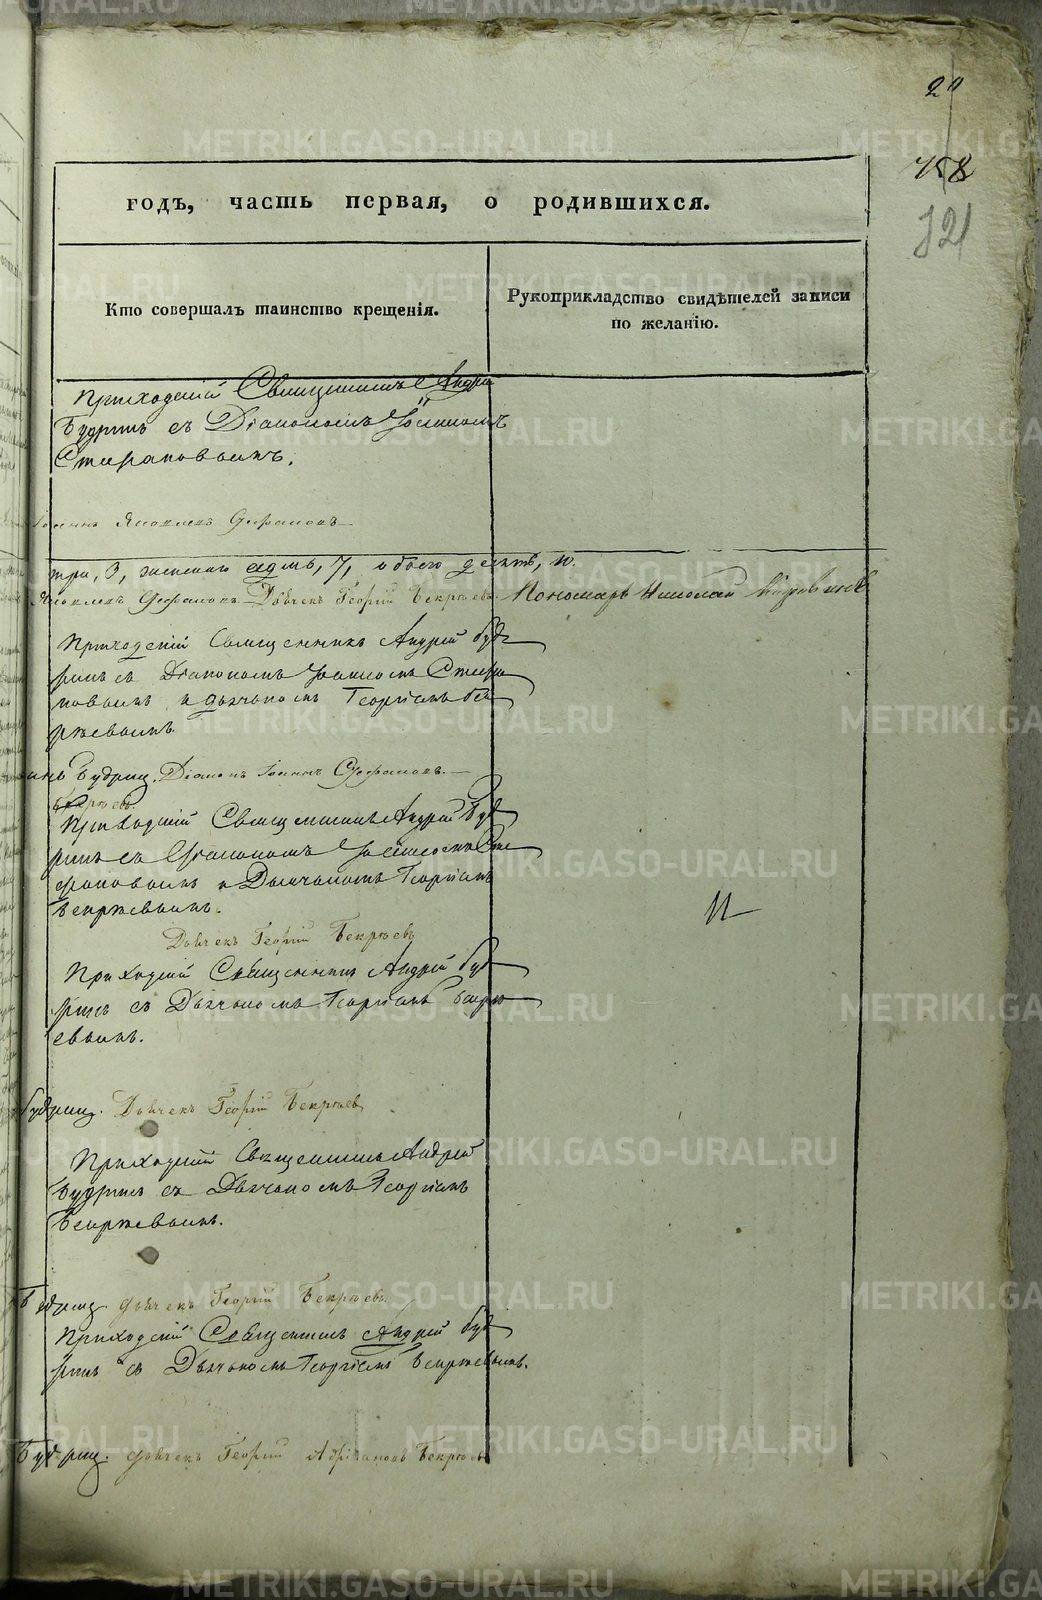 20
758
321
годъ, часть первая, о родившихся.
Кто совершалъ таинство крещенія.
Рукоприкладство свидѣтелей записи
по желанію.
Приходскій Священникъ Андрей
Будринъ съ Діакономъ Іоанномъ
Стефановымъ.
Іоаннъ Яковлевъ Стефановъ
три, 3, женскаго седмь, 7, обоего десять, 10.
Яковлевъ Стефановъ. Дьячекъ Георгій Бекряевъ. Пономарь Николай
Приходскій Священникъ Андрей Буд
ринъ съ Діакономъ Іоанномъ Стефа
новымъ и дьячкомъ Георгіемъ Бек
ряевымъ.
Будринъ. Діаконъ Іоаннъ Стефановъ.
Бекряевъ.
Приходскій Священникъ Андрей Буд
ринъ съ Діакономъ Іоанномъ Сте
фановымъ и Дьячкомъ Георгіемъ
Бекряевымъ.
Дьячекъ Георгій Бекряевъ
Приходскій Священникъ Андрей Буд
ринъ съ Дьячкомъ Георгіемъ Бекря
евымъ.
Будринъ. Дьячекъ Георгій Бекряевъ
Приходскій Священникъ Андрей
Будринъ съ Дьячкомъ Георгіемъ
Бекряевымъ.
Будринъ. дьячекъ Георгій Бекряевъ.
Приходскій Священникъ Андрей Буд
ринъ съ Дьячкомъ Георгіемъ Бекряевымъ.
Будринъ. дьячекъ Георгій Бекряевъ
METRIKI.GASO-URAL.RU